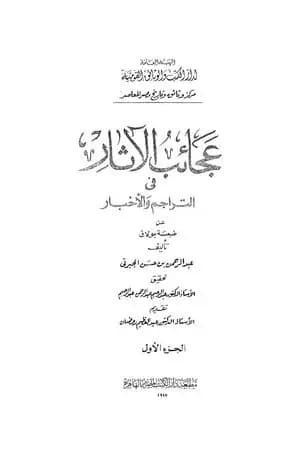 الهيئة العامة
لدار الكتب والوثائق القومية
مركز وثائق وتاريخ مصر المعاصر
عجائب الآثار
في
التراجم والأخبار
عن
طبعة بولاق
تأليف
عبد الرحمن بن حسن الجبرتي
تحقيق
الأستاذ الدكتور عبد الرحيم عبد الرحمن عبد الرحيم
تقديم
الأستاذ الدكتور عبد العظيم رمضان
الجزء الأول
مطبعة دار الكتب المصرية بالقاهرة